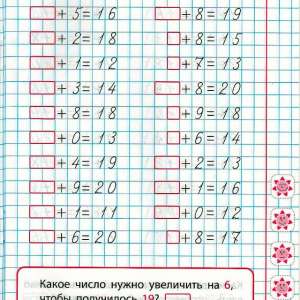 □ + 5 = 16 □ + 8 = 19
□ + 2 = 18 □ + 8 = 15
□ + 1 = 12 □ + 7 = 13
□ + 3 = 14 □ + 8 = 20
□ + 8 = 18 □ + 9 = 18
□ + 0 = 13 □ + 6 = 14
□ + 4 = 19 □ + 2 = 13
□ + 9 = 20 □ + 1 = 16
□ + 1 = 11 □ + 0 = 12
□ + 6 = 20 □ + 8 = 17
Какое число нужно увеличить на 6,
чтобы получилось 19? □